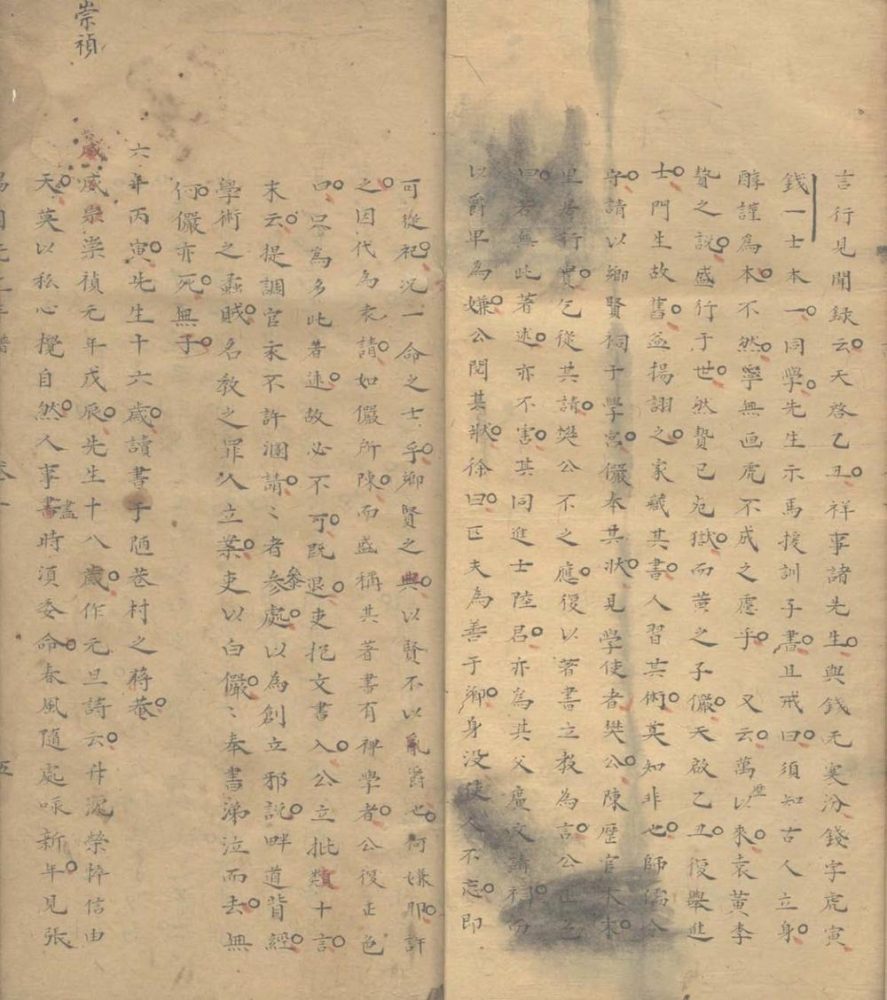 言行見聞録云天啓乙丑祥事諸先生與錢无寞汾錢字虎寅
錢一士本一同學先生示馬援訓子書且戒曰須知古人立身
醇謹為本不然寧無画虎不成之慮乎又云萬歷以來袁黃李
贄之説盛行于世然贄已死獄而黃之子儼天啟乙丑復舉進
士門生故書益揚詡之家藏其書人習其術莫知非也師儒令
守請以鄉賢祠于學宮儼本其狀見學使者樊公陳歷官大末
里居行實乞從其請樊公不之應復以著書立教為言公正色
曰若無此著述亦不害其同進士陸君亦為其父廣文請祠而
以爵卑為嫌公閱其狀徐曰匹夫為善于鄉身没使人不忘即
可從祀况一命之士乎鄉賢之典以賢不以亂爵也何嫌耶許
之因代為表請如儼所陳而盛稱其著書有禆學者公復正色
曰只為多此著述故必不可既退吏抱文書入公立批數十言
末云提調官宋不許溷請〻者参参處以為創立邪説畔道背經
學術之蟊賊名教之罪人立案吏以白儼〻奉書涕泣而去無
何儼亦死無子
崇禎
六年丙寅先生十六歲讀書于陋巷村之蒋菴
歲歲祟崇禎元年戊辰先生十八歲作元旦詩云升泥榮粹信由
天莫以私心攪自然人事書盡時須委命春風隨處咏新年見張